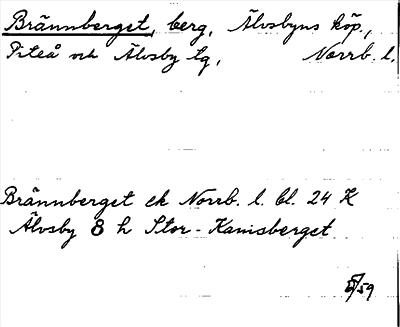 Brännberget, berg, Älvsbyns köp.,
Piteå och Älvsby tg, Norrb. l.
Brännberget ek Norrb. l. bl. 24 K
Älvsby 8 h Stor-Kanisberget
5/59